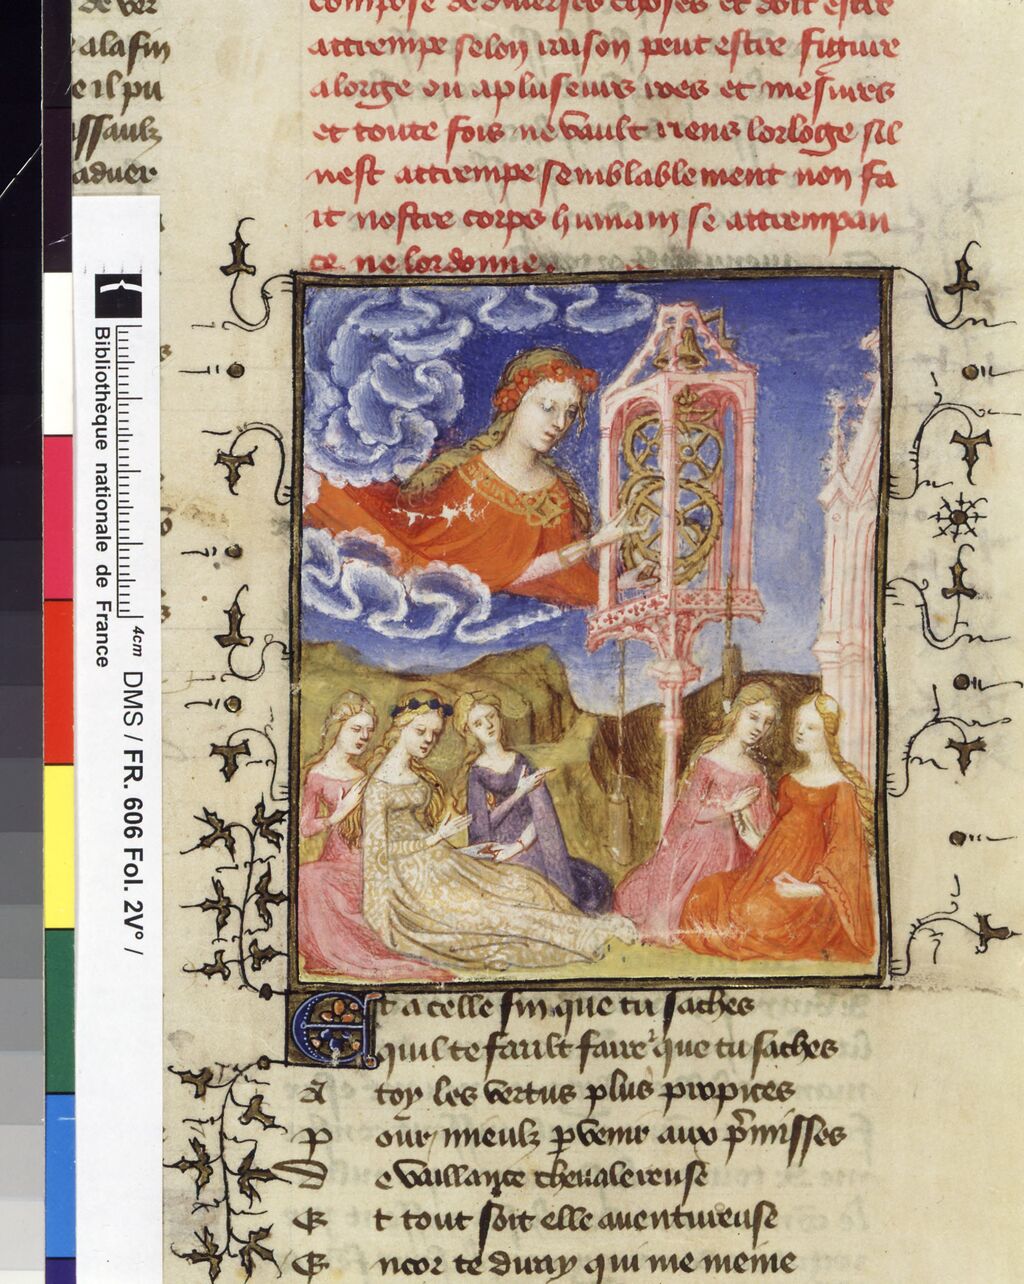 de ver
alafin
e il pu
ssaulz
aduer
compose de diuerses choses et doit estre
attrempe selon raison peut estre figure
alorge ou a pluseurs roes et mesures
et toute fois ne vault riens lorloge sil
nest attrempe semblablement non fa
it nostre corps humain se attrempan
ce ne lordonne.
Et a celle fin que tu saches
quil te fault faire que tu saches
A toy les vertus plus propices
Pour mieulx pvenir aux pmisses
De vaillance cheualereuse
Et tout soit elle auentureuse
Encor te diray qui me meine
Bibliothèque nationale de France
4cm
DMS / FR. 606 Fol. 2V° /